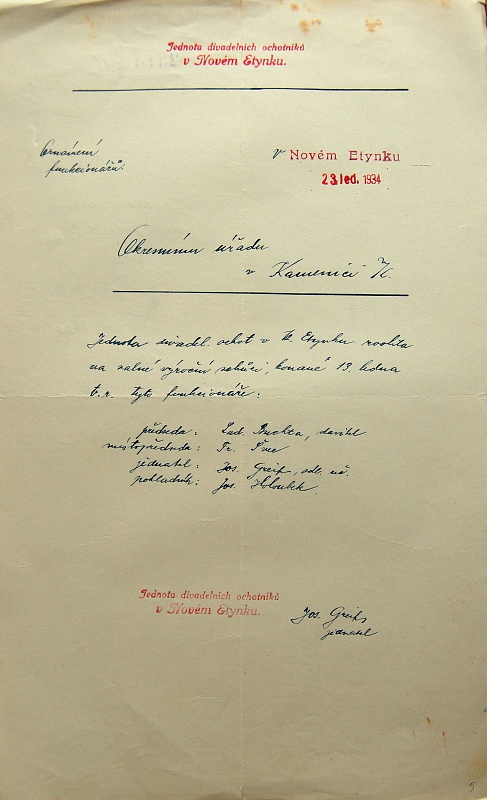 Jednota divadelních ochotníků
v Novém Etynku.
Oznámení
funkcionářů.
v Novém Etynku
23 led. 1934
Okresnímu úřadu
v Kamenici n/L.
Jednota divadel. ochot. v N. Etynku zvolila
na valné výroční schůzi, konané 13. ledna
t. r. tyto funkcionáře:
předseda: Lad. Buchta,
místopředseda: Fr.
jednatel: Jos. Greif, odb. uč.
pokladník: Jos. Holoubek.
Jednota divadelních ochotníků
v Novém Etynku.
Jos. Greif
jednatel
5